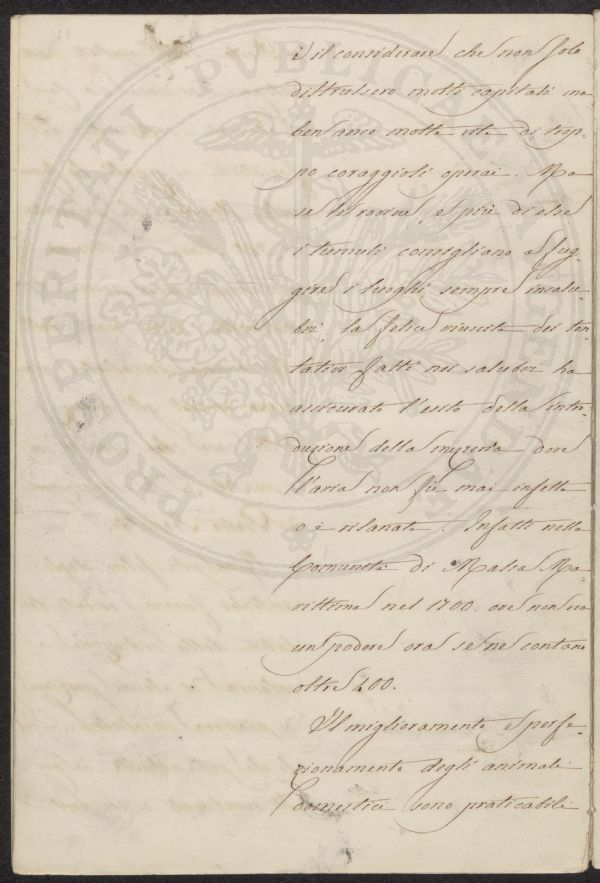 è il considerare che non solo
distrussero molti capitali ma
ben anco molte vite di trop-
po coraggiosi operai. Ma
se le rovine, e più di esse
i tumuli consigliano a fug-
gire i luoghi sempre insalu-
bri, la felice riuscita dei ten-
tativi fatti nei salubri ha
assicurato l'esito della intro-
duzione della mezzeria dove
l'aria non fu mai infetta
o è risanata. Infatti nella
Comunità di Massa Ma-
rittima nel 1700. ove non era
un podere ora se ne contano
oltre 400.
Il miglioramento e perfe-
zionamento degli animali
domestici sono praticabili
PROSPERITATI PUBLICAE AUGENDAE